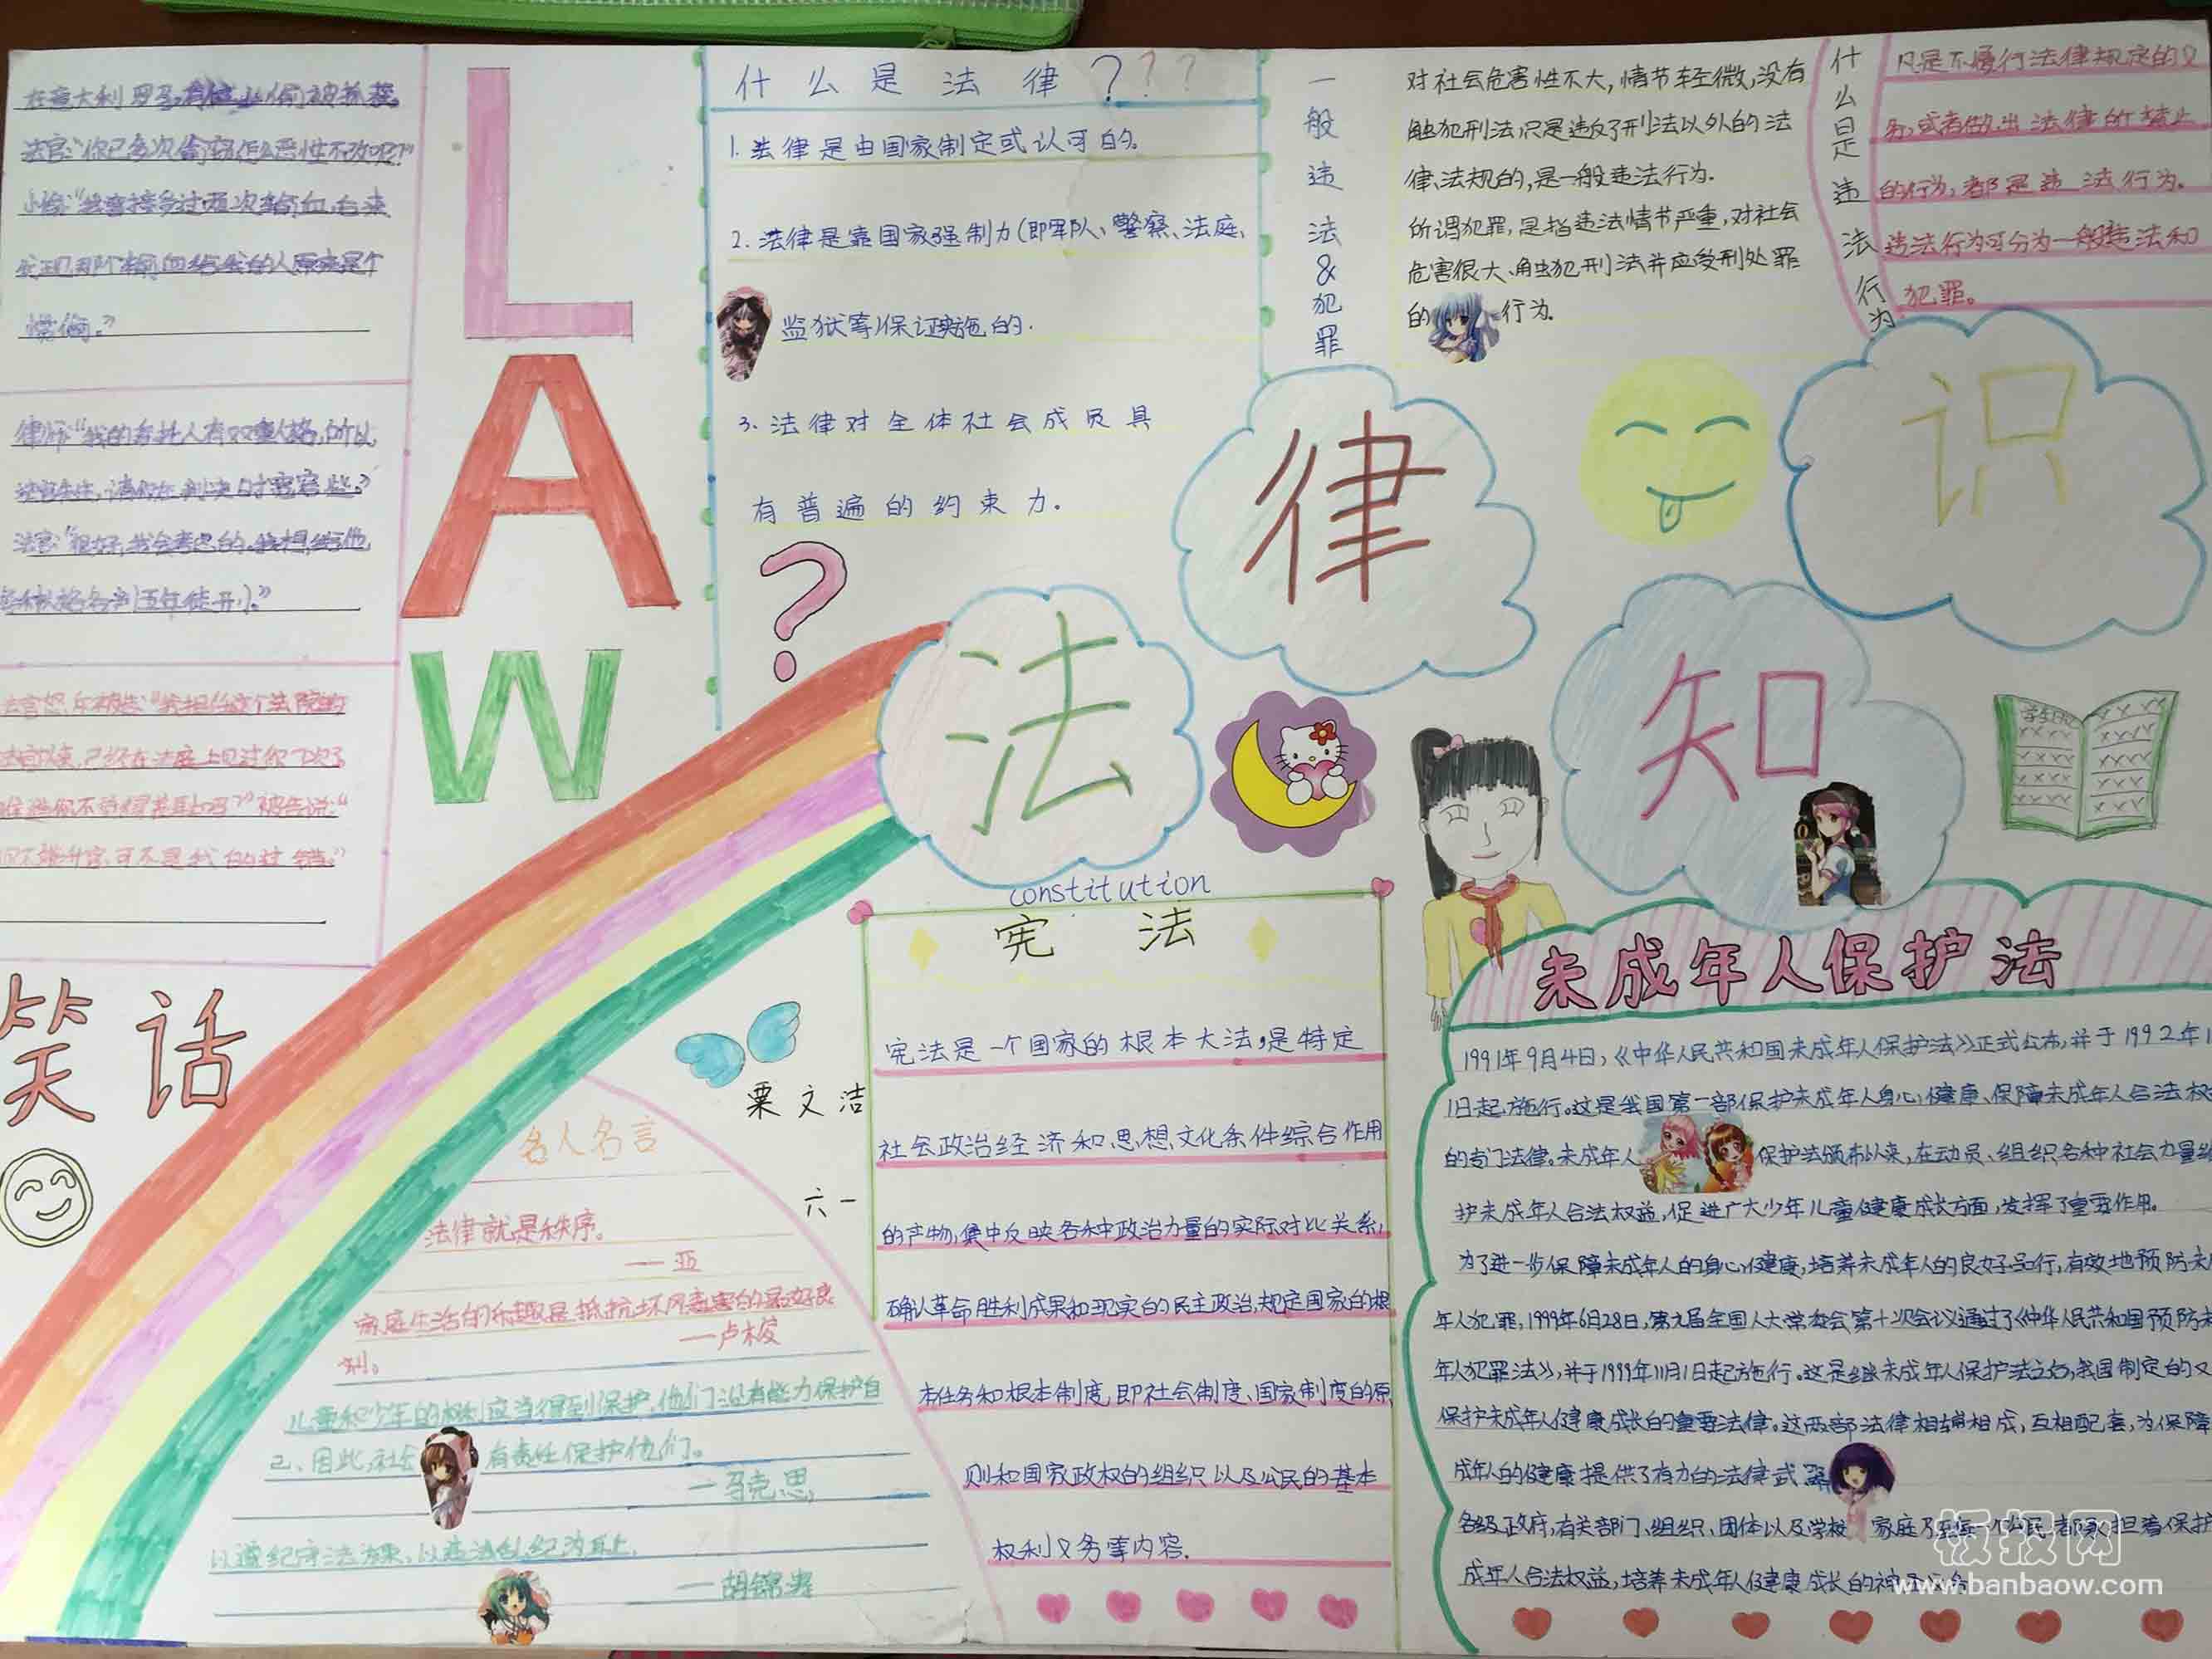 在意大利罗马,有位小偷被抓获。
法官:“你已多次偷窃,怎么恶性不改呢?”
小偷:“我曾接受过两次输血,后来
发现那个输血给我的人原来是个
惯偷。”
律师:“我的委托人有双重人格,所以
法官先生,请你在判决时宽容些。”
法官:“很好,我会考虑的。我想,给他
每种人格各判五年徒刑。”
法官怒斥被告:“我担任这个法院的
法官以来,已经在法庭上见过你
被告说:“
可不是我的过错。”
笑话
LAW
什么是法律???
1.法律是由国家制定或认可的。
2.法律是靠国家强制力(即军队、警察、法庭、
监狱等)保证实施的.
3.法律对全体社会成员具
有普遍的约束力.
?
一般违法&犯罪
对社会危害性不大,情节轻微,没有
触犯刑法,只是违反了刑法以外的法
律、法规的,是一般违法行为.
所谓犯罪,是指违法情节严重,对社会
危害很大、触犯刑法并应受刑处罪
的行为.
什么是违法行为
凡是不履行法律规定的义
务,或者做出法律所禁止
的行为,都是违法行为.
违法行为可分为一般违法和
犯罪。
法律知识
栗文洁
六一
名人名言
法律就是秩序。
——亚
家庭生活的乐趣是抵抗坏风毒害的最好良
剂。
——卢梭
儿童和少年的权利应当得到保护,他们没有能力保护自
己、因此,社会有责任保护他们。
—马克思
以遵纪守法为荣、以违法乱纪为耻.
—胡锦涛
constitution
宪法
宪法是一个国家的根本大法,是特定
社会政治经济和思想文化条件综合作用
的产物,集中反映各种政治力量的实际对比关系,
确认革命胜利成果和现实的民主政治,规定国家的根
本任务和根本制度,即社会制度、国家制度的原
则和国家政权的组织以及公民的基本
权利义务等内容.
未成年人保护法
1991年9月4日,《中华人民共和国未成年人保护法》正式公布,并于1992年1
1日起施行。这是我国第一部保护未成年人身心健康、保障未成年人合法权
的专门法律。未成年人保护法颁布以来,在动员、组织各种社会力量维
护未成年人合法权益,促进广大少年儿童健康成长方面,发挥了重要作用。
为了进一步保障未成年人的身心健康,培养未成年人的良好品行,有效地预防未
年人犯罪,1999年6月28日,第九届全国人大常委会第十次会议通过了《中华人民共和国预防未
年人犯罪法》,并于1999年11月1日起施行。这是继未成年人保护法之后,我国制定的又
保护未成年人健康成长的重要法律。这两部法律相辅相成,互相配套,为保障
成年人的健康提供了有力的法律武器
各级政府,有关部门、组织、团体以及学校家庭乃至每一个公民,都承担着保护
成年人合法权益,培养未成年人健康成长的神
板报网
www.banbaow.com